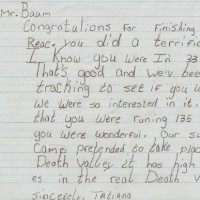 Mr. Baum
Congratulions For Finishing
Reac. you did a terrific
I know you were In 33
That's good and we'v bee
tracking to see if you w
we were so interested in it.
that you were runing 135
you were wonderful. Our su
Camp pretended to take plac
Death valley it has high
es in the real Death V
Sincerely, Tatiana